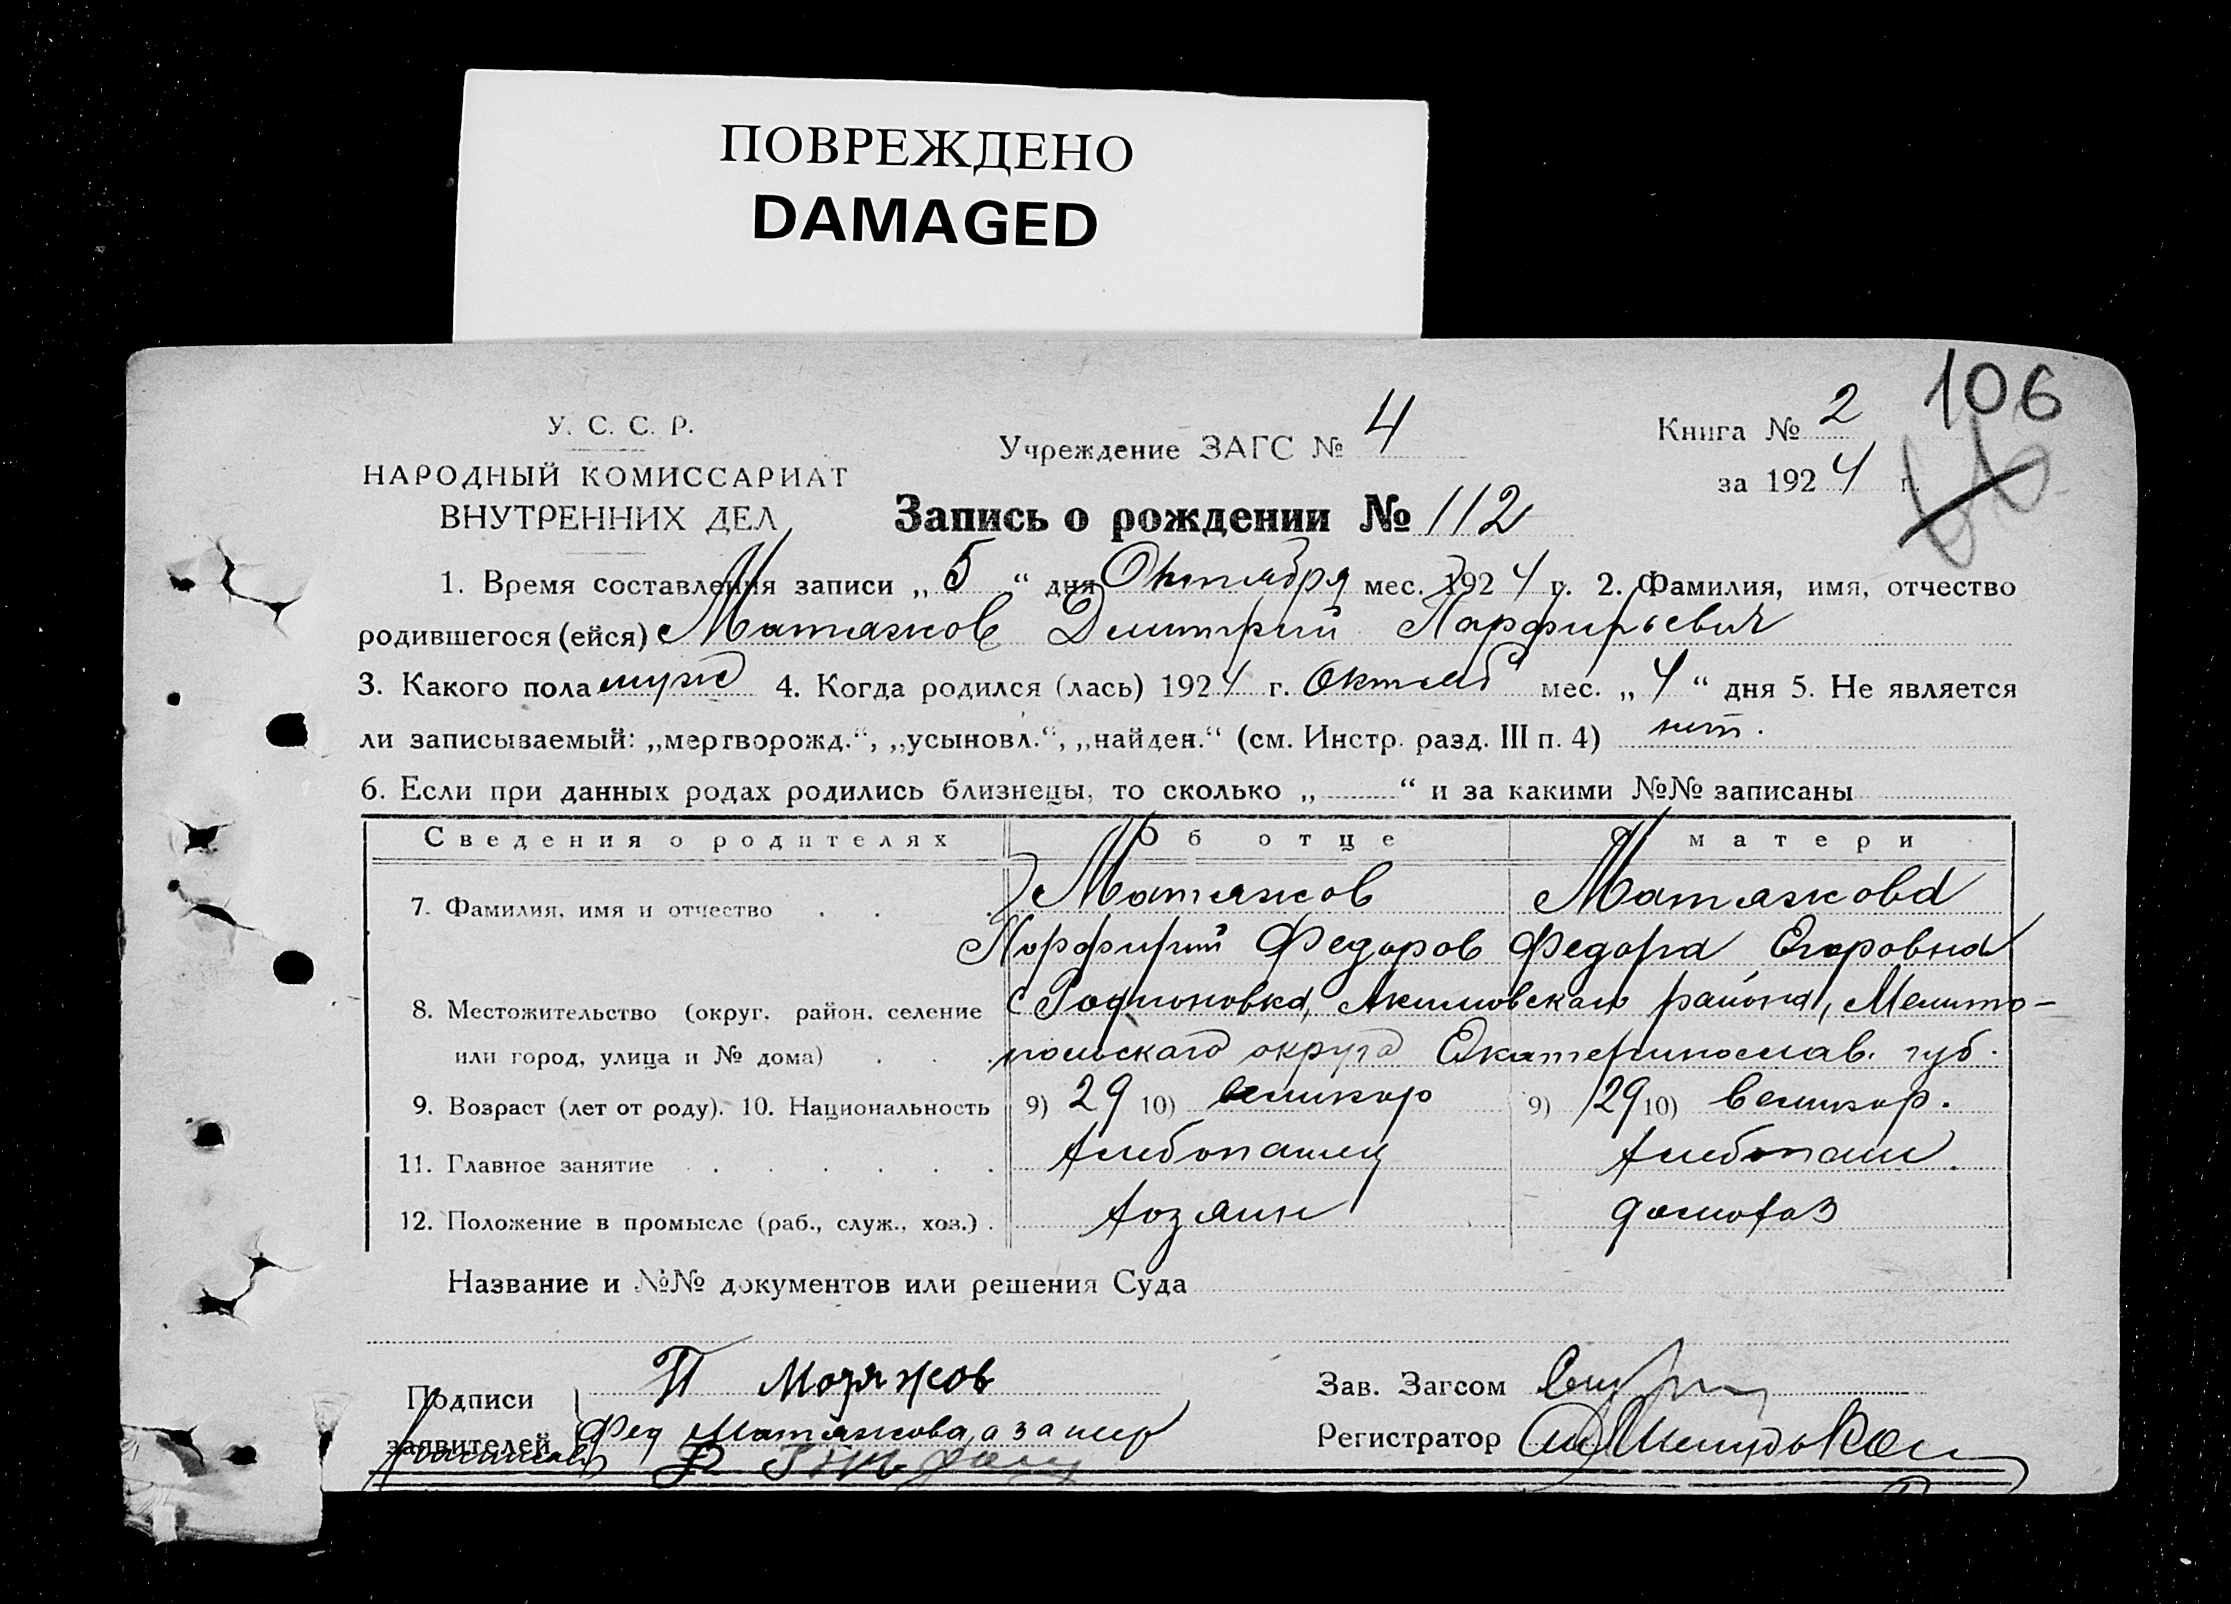 ПОВРЕЖДЕНО
DAMAGED
106
У. С. С. Р.
НАРОДНЫЙ КОМИССАРИАТ
ВНУТРЕННИХ ДЕЛ
Учреждение ЗАГС № 4
Книга № 2
за 1924 г.
Запись о рождении № 112
1. Время составления записи „ 5 “ дня Октября мес. 1924 г. 2. Фамилия, имя, отчество
родившегося (ейся) Матяжов Дмитрий Парфирьевич
3. Какого пола муж 4. Когда родился (лась) 1924 г. Октяб мес. „ 4 “ дня 5. Не является
ли записываемый: „мертворожд.“, „усыновл.“, „найден.“ (см. Инстр. разд. III п. 4) нет.
6. Если при данных родах родились близнецы, то сколько „ “ и за какими №№ записаны
Сведения о родителях Об отце О матери
7. Фамилия, имя и отчество Матяжов Матяжова
Порфирий Федоров Федора Егоровна
8. Местожительство (округ. район. селение с Родионовка, Акимовского района, Мелито-
или город, улица и № дома) польского округа Екатеринослав. губ.
9. Возраст (лет от роду). 10. Национальность 9) 29 10) великор 9) 29 10) великор.
11. Главное занятие Хлебопашец Хлебопаш.
12. Положение в промысле (раб., служ., хоз.) Хозяин домохоз
Название и №№ документов или решения Суда
Подписи П Мотяжов
заявителей Фед Матяжова, а за нер
Зав. Загсом
Регистратор